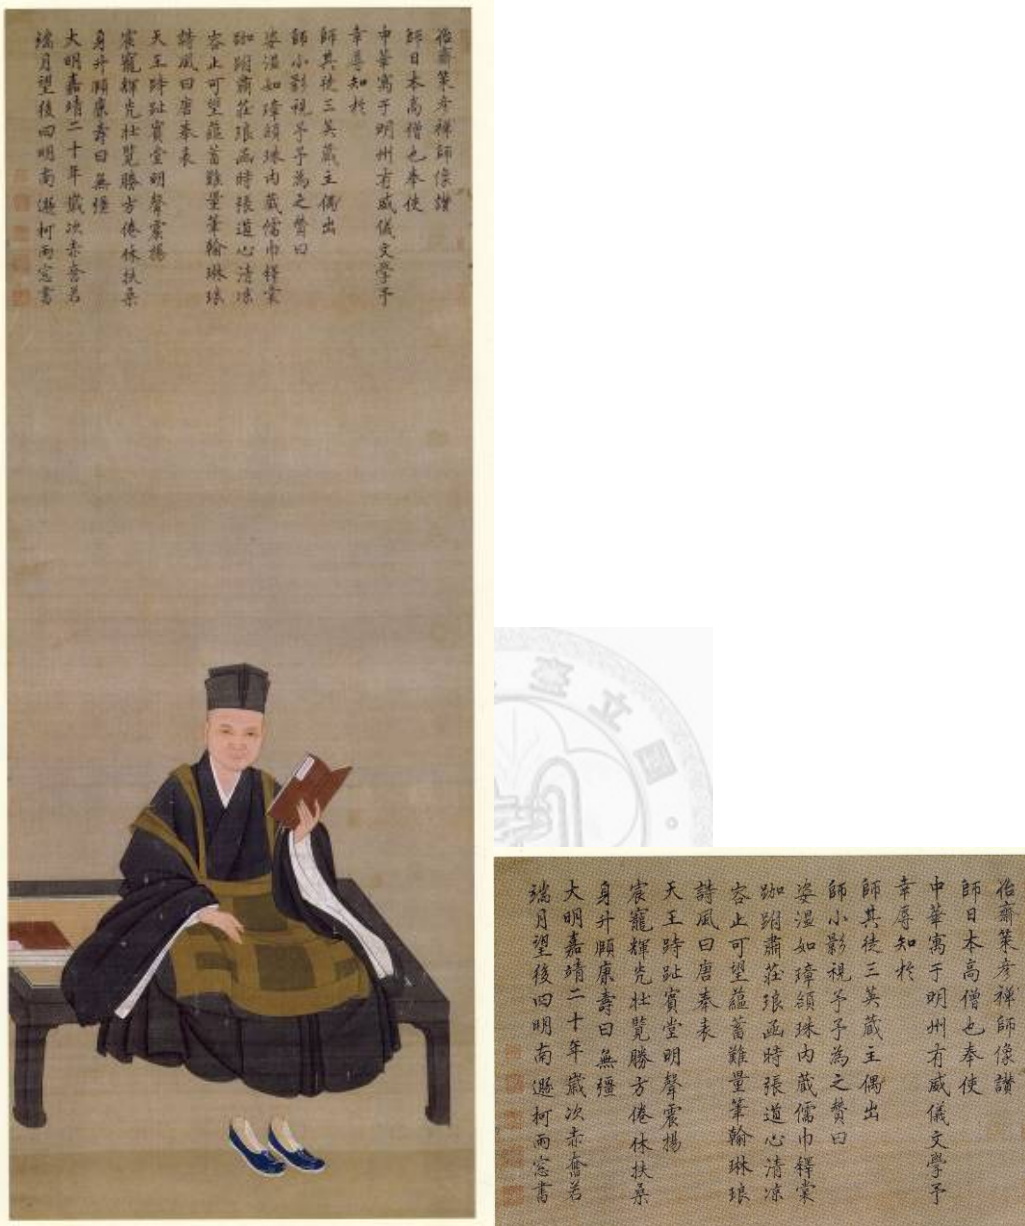 怡齋策彥禪師像讚
師日本高僧也奉使
中華寓于明州有威儀文學予
幸辱知於
師其徒三英蔵主偶出
師小影視予予為之贊曰
姿溫如璋頷珠內蔵儒巾釋裳
跏趺肅莊琅函時張道心清凉
容止可望蘊蓄難量筆翰琳琅
詩風曰唐奉表
天王跱趾賓堂明聲震揚
宸寵輝光壯覽勝方倦休扶桑
身升頤康壽曰無疆
大明嘉靖二十年歲次赤奮若
端月望後四明南遯柯雨窓書
怡齋策彥禪師像讚
師日本高僧也奉使
中華寓于明州有威儀文學予
幸辱知於
師其徒三英蔵主偶出
師小影視予予為之贊曰
姿溫如璋頷珠內蔵儒巾釋裳
跏趺肅莊琅函時張道心清凉
容止可望蘊蓄難量筆翰琳琅
詩風曰唐奉表
天王跱趾賓堂明聲震揚
宸寵輝光壯覽勝方倦休扶桑
身升頤康壽曰無疆
大明嘉靖二十年歲次赤奮若
端月望後四明南遯柯雨窓書
國立臺